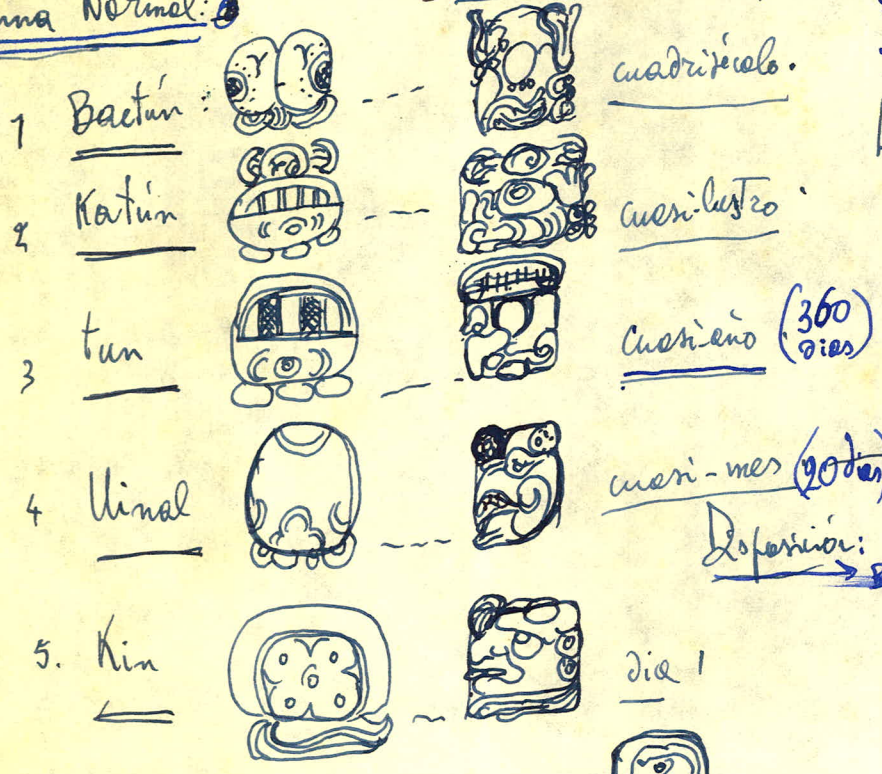 Normal:
1 Bactún: --- cuadrisécalo.
2 Katún --- cuasi-lustro
3 tun --- cuasi-año (360 dias)
4 Uinal --- cuasi-mes (20 dias)
Disposición:
5. Kin ~ dia 1